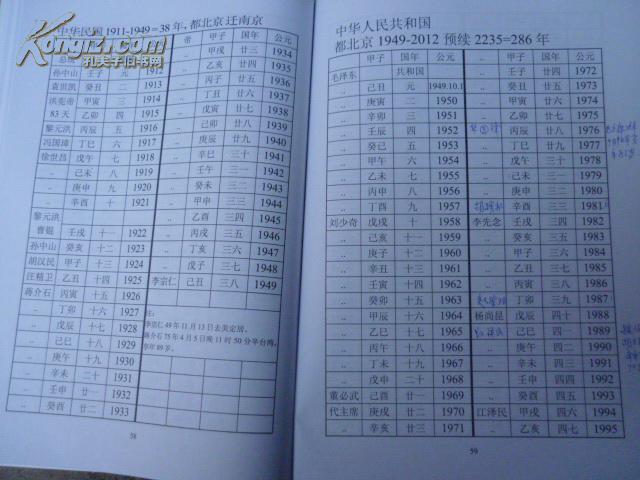 中华民国 1911-1949=38年,都北京 迁南京
总统 1912
孙中山 壬子 元 1912
袁世凯 癸丑 二 1913
洪宪帝 甲寅 三 1914
83天 乙卯 四 1915
黎元洪 丙辰 五 1916
冯国璋 丁巳 六 1917
徐世昌 戊午 七 1918
,, 己未 八 1919
,, 庚申 九 1920
,, 辛酉 十 1921
黎元洪
曹锟 壬戌 十一 1922
孙中山 癸亥 十二 1923
胡汉民 甲子 十三 1924
汪精卫 乙丑 十四 1925
蒋介石 丙寅 十五 1926
,, 丁卯 十六 1927
,, 戊辰 十七 1928
,, 己巳 十八 1929
,, 庚午 十九 1930
,, 辛未 二十 1931
,, 壬申 廿一 1932
,, 癸酉 廿二 1933
帝 甲子 国年 公元
,, 甲戌 廿三 1934
,, 乙亥 廿四 1935
,, 丙子 廿五 1936
,, 丁丑 廿六 1937
,, 戊寅 廿七 1938
,, 己卯 廿八 1939
,, 庚辰 廿九 1940
,, 辛巳 三十 1941
,, 壬午 三一 1942
,, 癸未 三二 1943
,, 甲申 三三 1944
,, 乙酉 三四 1945
,, 丙戌 三五 1946
,, 丁亥 三六 1947
,, 戊子 三七 1948
李宗仁 己丑 三八 1949
注:
李宗仁49年11月13日去美定居,
蒋介石75年4月5日晚11时50分卒台湾,
享年89岁。
58
中华人民共和国
都北京 1949-2012 预续 2235=286年
甲子 国年 公元
毛泽东 共和国
,, 己丑 元 1949.10.1
,, 庚寅 二 1950
,, 辛卯 三 1951
,, 壬辰 四 1952
,, 癸巳 五 1953
,, 甲午 六 1954
,, 乙未 七 1955
,, 丙申 八 1956
,, 丁酉 九 1957
刘少奇 戊戌 十 1958
,, 己亥 十一 1959
,, 庚子 十二 1960
,, 辛丑 十三 1961
,, 壬寅 十四 1962
,, 癸卯 十五 1963
,, 甲辰 十六 1964
,, 乙巳 十七 1965
,, 丙午 十八 1966
,, 丁未 十九 1967
,, 戊申 二十 1968
董必武 己酉 廿一 1969
代主席 庚戌 廿二 1970
,, 辛亥 廿三 1971
,, 甲子 国年 公元
,, 壬子 廿四 1972
,, 癸丑 廿五 1973
,, 甲寅 廿六 1974
,, 乙卯 廿七 1975
华国锋 丙辰 廿八 1976
,, 丁巳 廿九 1977
,, 戊午 三十 1978
,, 己未 三一 1979
,, 庚申 三二 1980
胡耀邦 辛酉 三三 1981
李先念 壬戌 三四 1982
,, 癸亥 三五 1983
,, 甲子 三六 1984
,, 乙丑 三七 1985
,, 丙寅 三八 1986
丁卯 三九 1987
杨尚昆 戊辰 四十 1988
己巳 四一 1989
,, 庚午 四二 1990
,, 辛未 四三 1991
,, 壬申 四四 1992
,, 癸酉 四五 1993
江泽民 甲戌 四六 1994
,, 乙亥 四七 1995
59